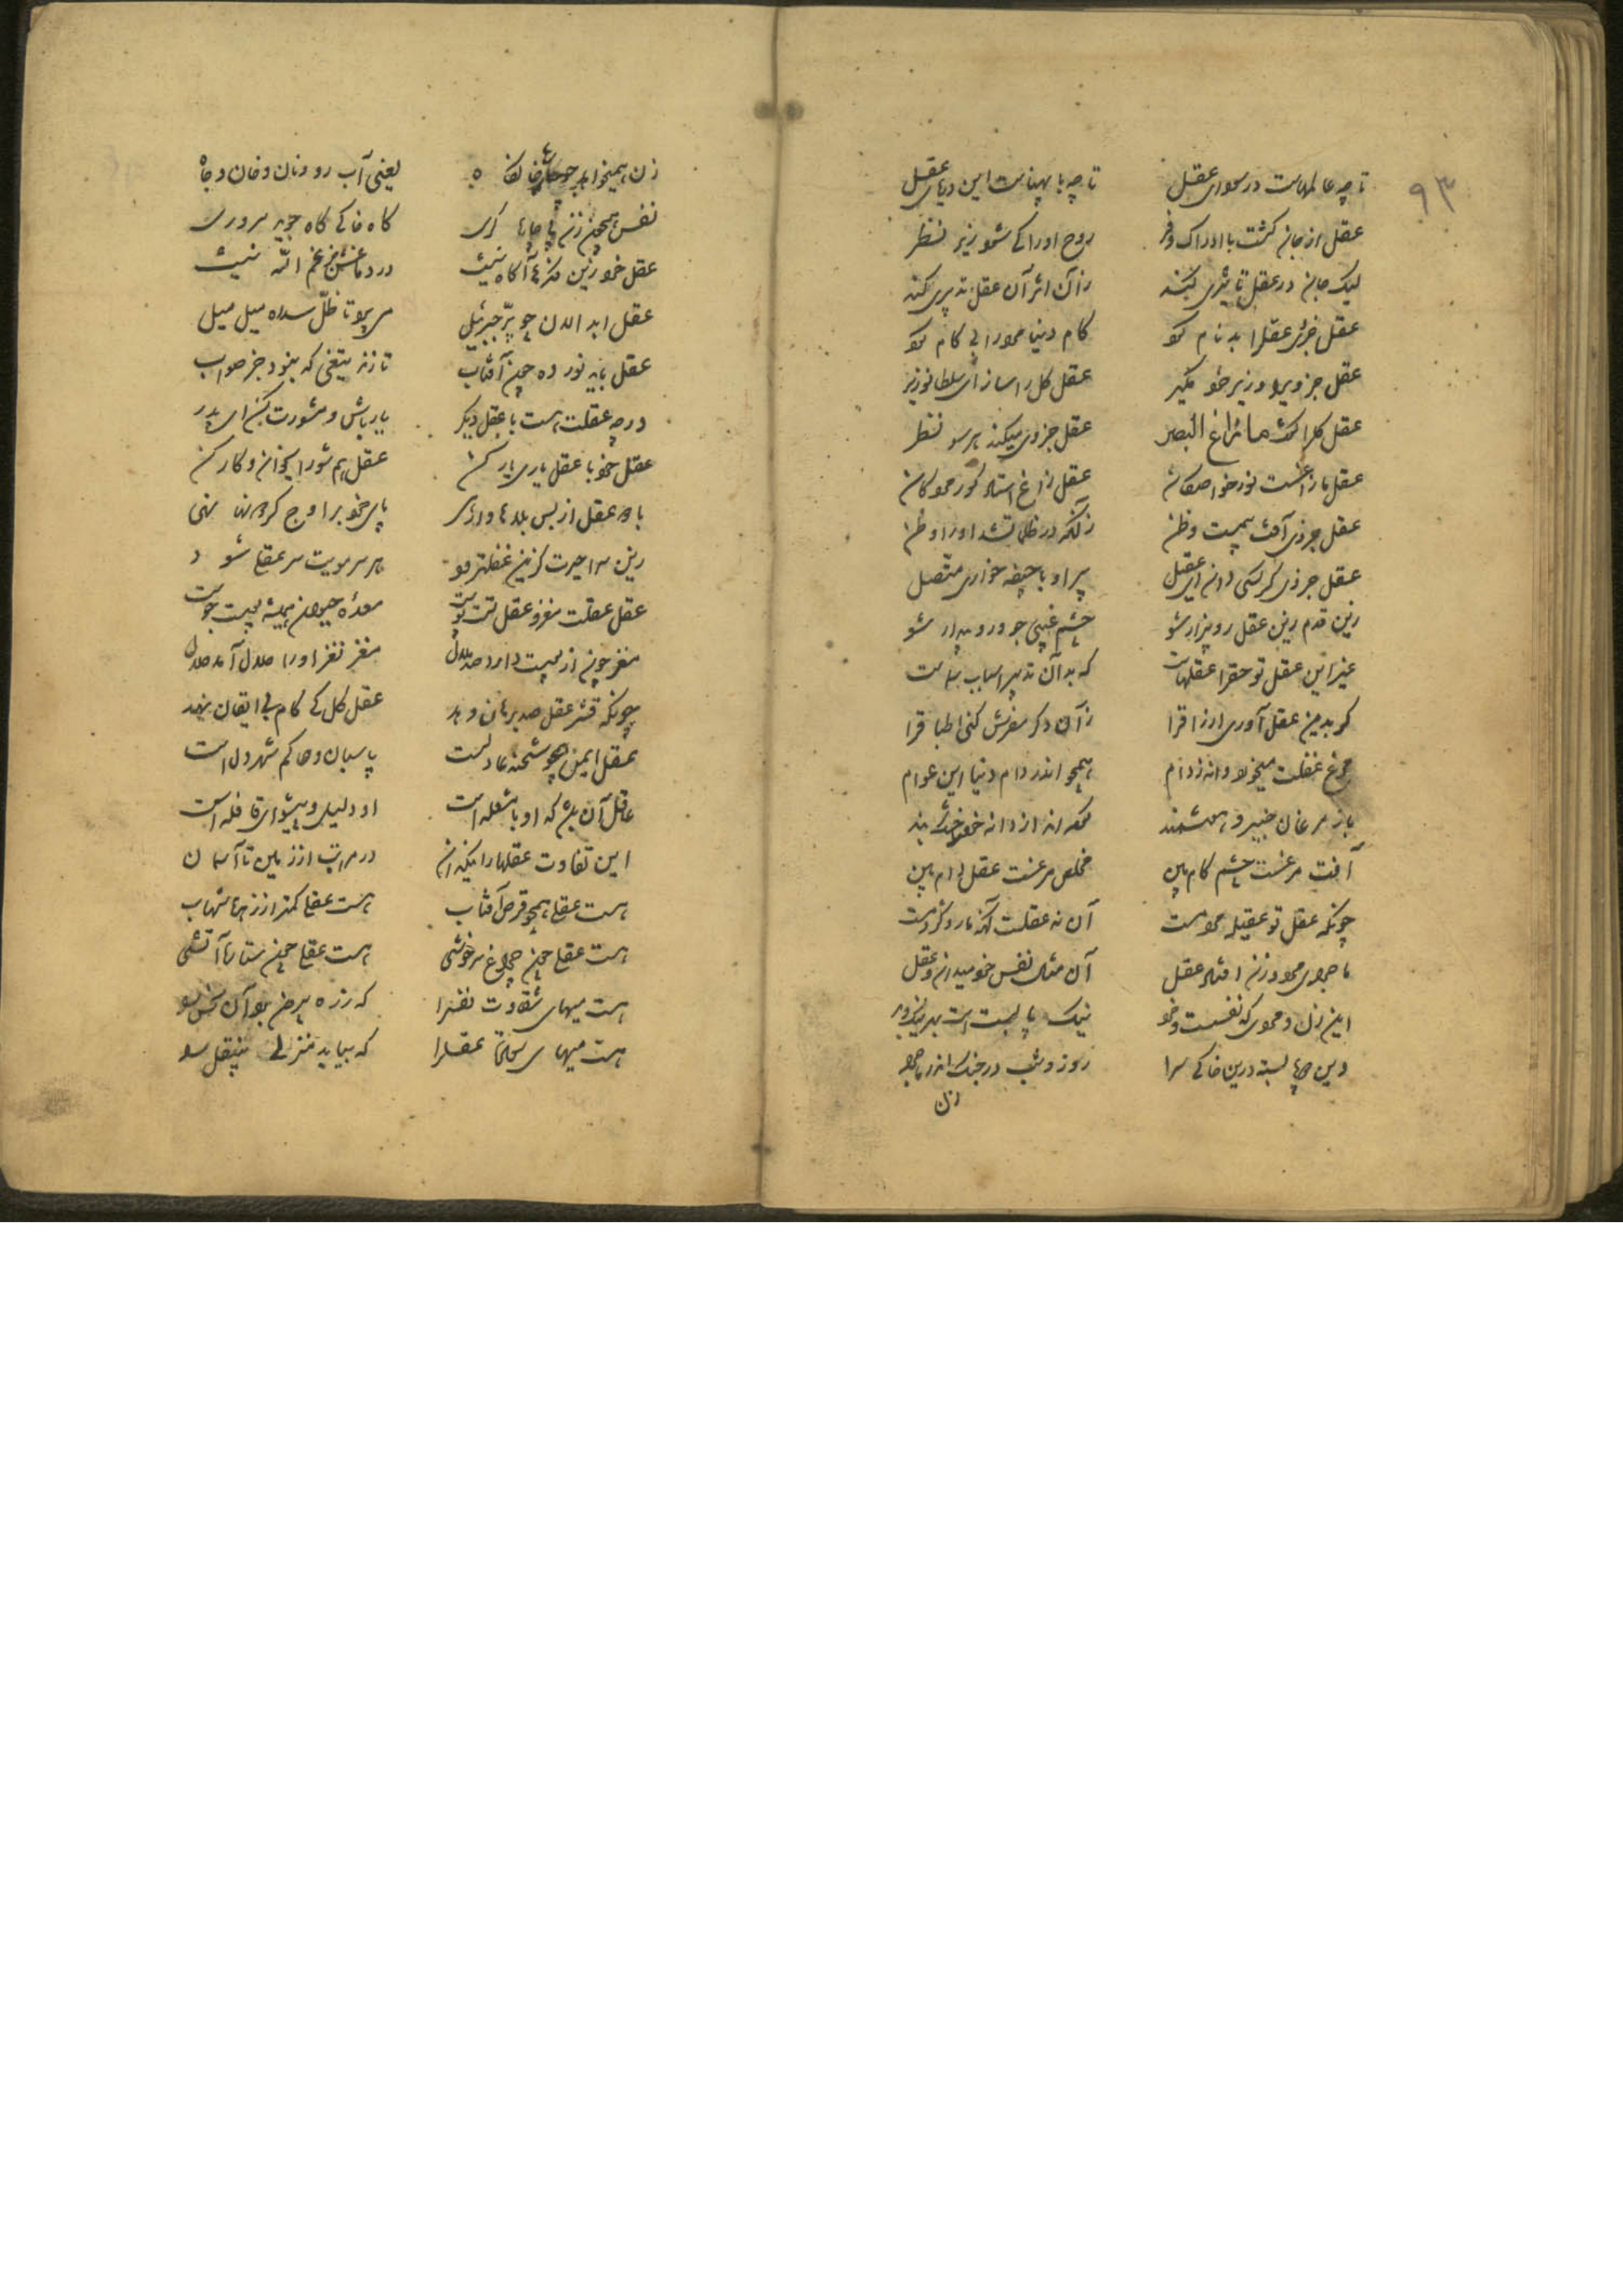 ۹۳
تا چه عالمهاست در سودای عقل تا چه با پهناست این دریای عقل
عقل از جان کشت با ادراک و فر روح اورا کی شود زیر نظر
لیک جان در عقل تاثیری کند زان اثر آن عقل تدبیری کند
عقل جزوی عقلرا بدنام کرد کام دنیا مرد را بی کام کرد
عقل جزویرا وزیر خود مگیر عقل کل را ساز ای سلطان وزیر
عقل کلرا گفت مازاغ البصر عقل جزوی میکند هر سو نظر
عقل مازاغست نور خاصکان عقل زاغ استاد کور مردکان
عقل جزوی آفتش وهمست وظن زانکه در ظلمات شد اورا وطن
عقل جزوی کرکس دان ای پر او با جیفه خواری متصل
زین قدم زین عقل رو بیزار شو چشم غیبی جو و برخوردار شو
غیر این عقل تو حقرا عقلهاست که بدان تدبیر اسباب
که بدین عقل آوری ارزاقرا زان دکر مفرش کنی اطباقرا
مرغ غفلت میخورد دانه ز دام همچو اندر دام دنیا این عوام
باز مرغان خبیر هوشمند کرده اند از دانه خودرا خشک بند
آفت مرغست چشم کام بین مخلص مرغست عقل دام بین
چونکه عقل تو عقیله مردمست آن نه عقلست آنکه مار و کژدمست
ماجرای مرد و زن افتاد نقل آن مثال نفس خود میدان و عقل
این زن و مردی که نفسست و خرد نیک پا بست است بهر نیک و بد
وین پا بسته درین خاکی سرا روز و شب در جنک اندر ماجرا
زن
زن همیخواهد خانقاه یعنی آب رو و نان و خان و جاه
نفس همچون زن پی چاره کری گاه خاکی گاه جوید سروری
عقل خود زین فکرها آگاه نیست در دماغش جز غم الله نیست
عقل ابدالان چو پر جبرئیل میپرد تا ظل سدره میل میل
عقل باید نور ده چون آفتاب تا زند تیغی که نبود جز صواب
ورچه عقلت هست با عقل دیگر یار باش و مشورت کن ای پدر
عقل خود با عقل یاری یار کن امرهم شورا بخوان و کار کن
با دو عقل از بس بلاها وارهی پای خود بر اوج گردونها نهی
زین سر از حیرت گر این عقلت رود هر سر مویت سر عقلی شود
عقل عقلت مغز و عقل تست پوست معده حیوان همیشه پوست جوست
مغز جوی از پوست دارد صد ملال مغز نغز اورا حلال آمد حلال
چونکه قشر عقل صد برهان دهد عقل کل کی کام بی ایقان نهد
عقل ایمانی چو شحنه عادلست پاسبان و حاکم شهر دل است
عاقل آن باشد که او با مشعله است او دلیل و پیشوای قافله است
این تفاوت عقلهارا نیک دان در مراتب از زمین تا آسمان
هست عقلی همچو قرص آفتاب هست عقلی کمتر از زهره شهاب
هست عقلی چون چراغ سرخوشی هست عقلی چون ستاره آتشی
هست میهای شقاوت نفسرا که ز ره بیرون برد آن نحس را
هست میهای سعادت عقلرا که بیابد منزل بی نقل را